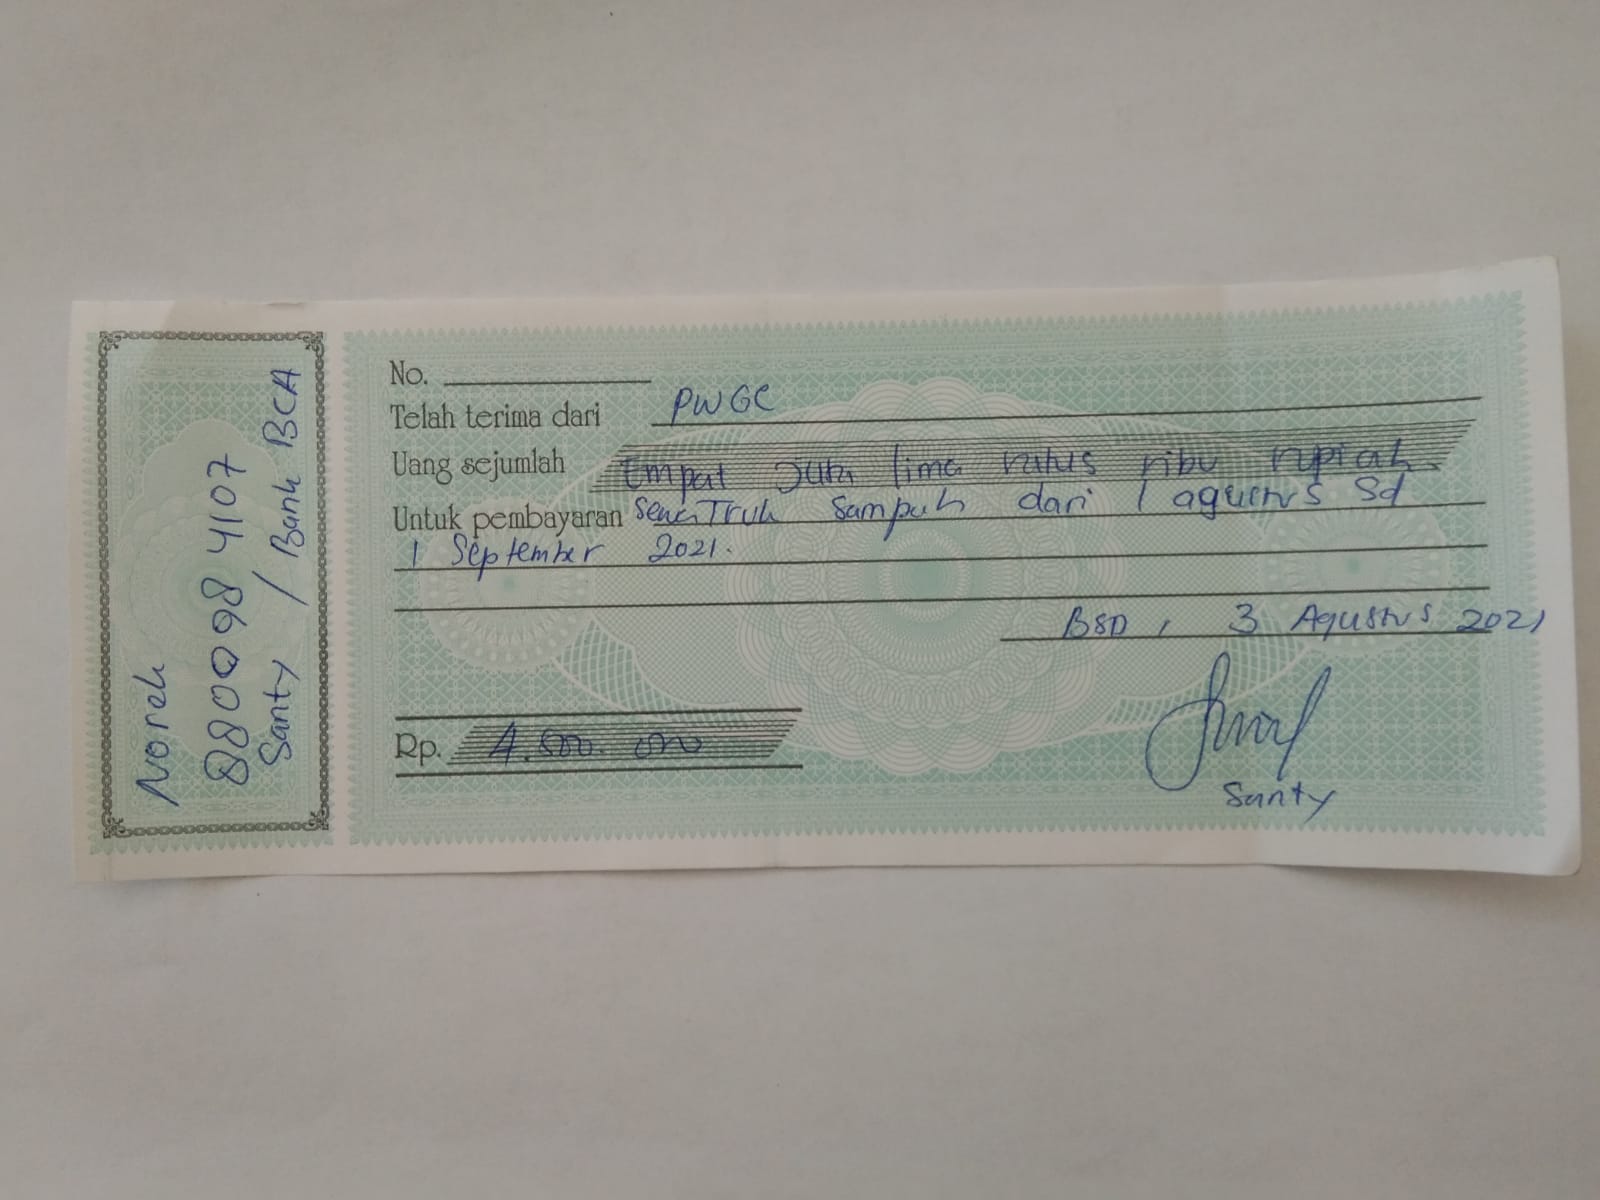 Norek
8800 98 4107
Santy / Bank BCA
No.
Telah terima dari PWGC
Uang sejumlah Empat Juta lima ratus ribu rupiah
Untuk pembayaran sewa Truk Sampah dari 1 agustus Sd
1 September 2021.
BSD, 3 Agustus 2021
Rp. 4.500.000
Santy